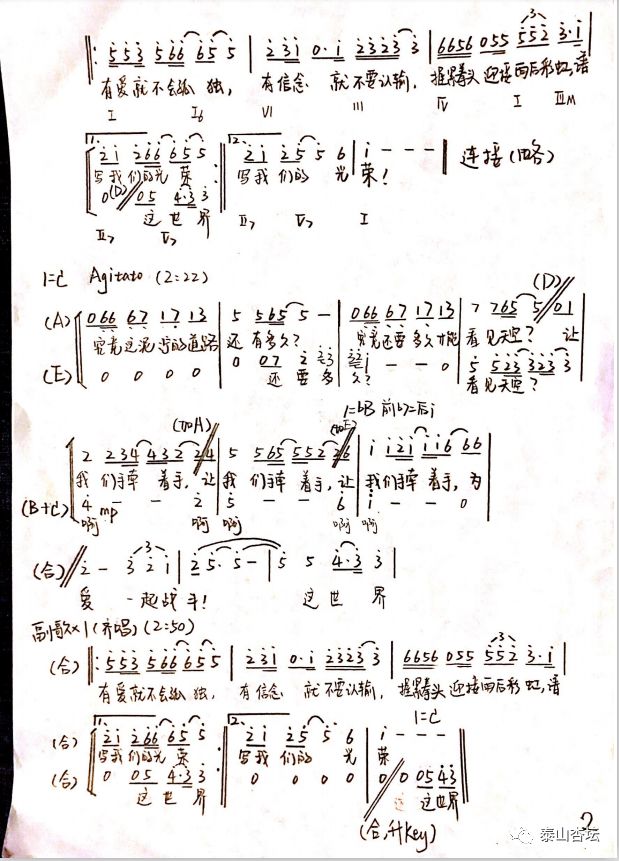 ‖: 5 5 3 5 6 6 6 5 5 | 2 3 1 0 · 1 2 3 2 3 3 | 6 6 5 6 0 5 5 5 5 2 3 · 1 |
有爱就不会孤独, 有信念 就不要认输, 握紧拳头 迎接雨后彩虹, 谱
I I6 VI III IV I IIIM
1. 2 1 2 6 6 6 5 5 :‖ 2. 2 1 2 5 5 6 | 1 - - - ‖ 连接(略)
写我们的光荣 写我们的 光 荣!
0 (D) 0 5 4 · 3 3
这世界
II7 V7 II7 V7 I
1=C Agitato (2:22) (D)
(A) 0 6 6 6 7 1 7 1 3 | 5 5 6 5 5 - | 0 6 6 6 7 1 7 1 3 | 7 7 6 5 5 0 1
究竟这泥泞的道路 还有多久? 究竟还要多久才能 看见天空? 让
(E) 0 0 0 0 0 0 7 2 - - 0 5 5 2 3 3 2 3 3
还要多 久? 看见天空?
1=bB 前b7=后i
2 2 3 4 4 3 2 2 4 | 5 5 6 5 5 5 2 2 6 | 1 1 2 1 1 1 6 6 6
我们手牵着手, 让 我们手牵着手, 让 我们手牵着手, 为
(B+C) 4 mp - - 2 | 5 - - 6 | 1 - - 0
啊 啊 啊 啊 啊
(合) 2 - 3 2 1 | 2 5 · 5 - | 5 5 4 · 3 3 |
爱 一起战斗! 这世界
副歌×1(齐唱)(2:50)
(合) ‖: 5 5 3 5 6 6 6 5 5 | 2 3 1 0 · 1 2 3 2 3 3 | 6 6 5 6 0 5 5 5 5 2 3 · 1 |
有爱就不会孤独, 有信念 就不要认输, 握紧拳头 迎接雨后彩虹, 谱
1=C
(合) 1. 2 1 2 6 6 6 5 5 :‖ 2. 2 1 2 5 5 6 | 1 - - -
写我们的光荣 写我们的 光 荣
(合) 0 0 5 4 · 3 3 0 0 0 0 0 0 5 4 3
这世界 这世界
(合,升key)
2
泰山杏坛